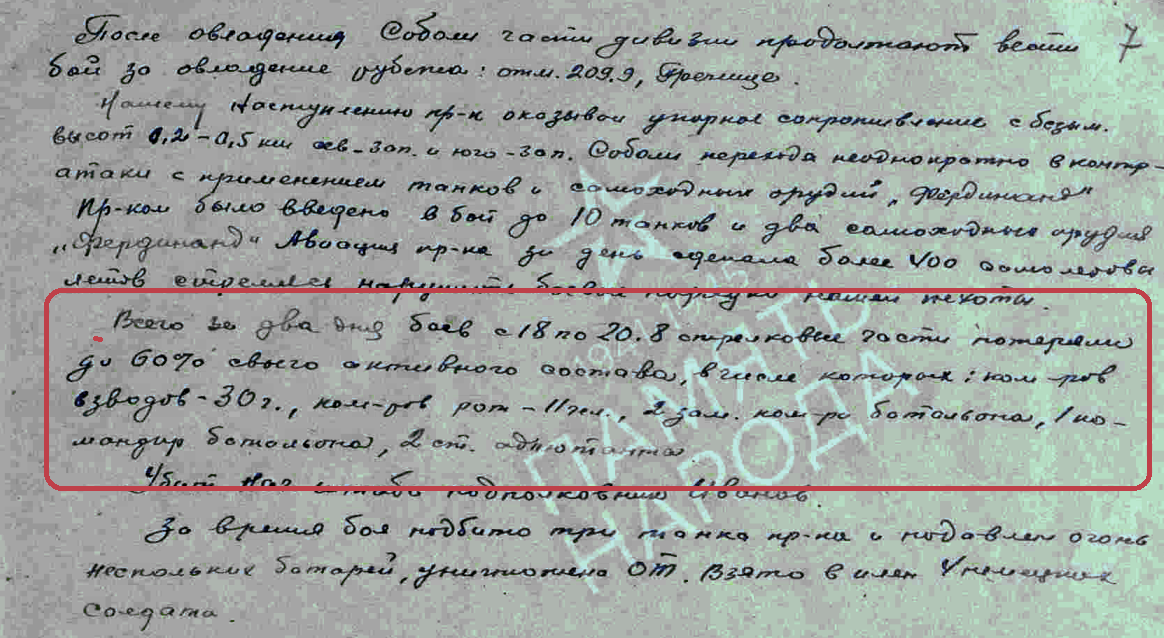 После овладения Соболи части дивизии продолжают вести
7
бой за овладение рубежа: отм. 209.9, Гречище.
Нашему наступлению пр-к оказывал упорное сопротивление с безым.
высот 0,2-0,5 км сев-зап. и юго-зап. Соболи переходя неоднократно в контр-
атаки с применением танков и самоходных орудий „Фердинанд"
Пр-ком было введено в бой до 10 танков и два самоходных орудия
„Фердинанд" Авиация пр-ка за день сделала более 400 самолетовы
летов стремясь нарушить боевой порядки нашей пехоты.
Всего за два дня боев с 18 по 20.8 стрелковые части потеряли
до 60% своего активного состава, в числе которых: ком-ров
взводов-30 г., ком-ров рот-11 чел., 2 зам. ком-ра батальона, 1 ко-
мандир батальона, 2 ст. адъютанта
Убит нач штаба подполковник Иванов
За время боя подбито три танка пр-ка и подавлен огонь
нескольких батарей, уничтожена ОТ. Взято в плен 4 немецких
солдата.
ПАМЯТЬ
НАРОДА